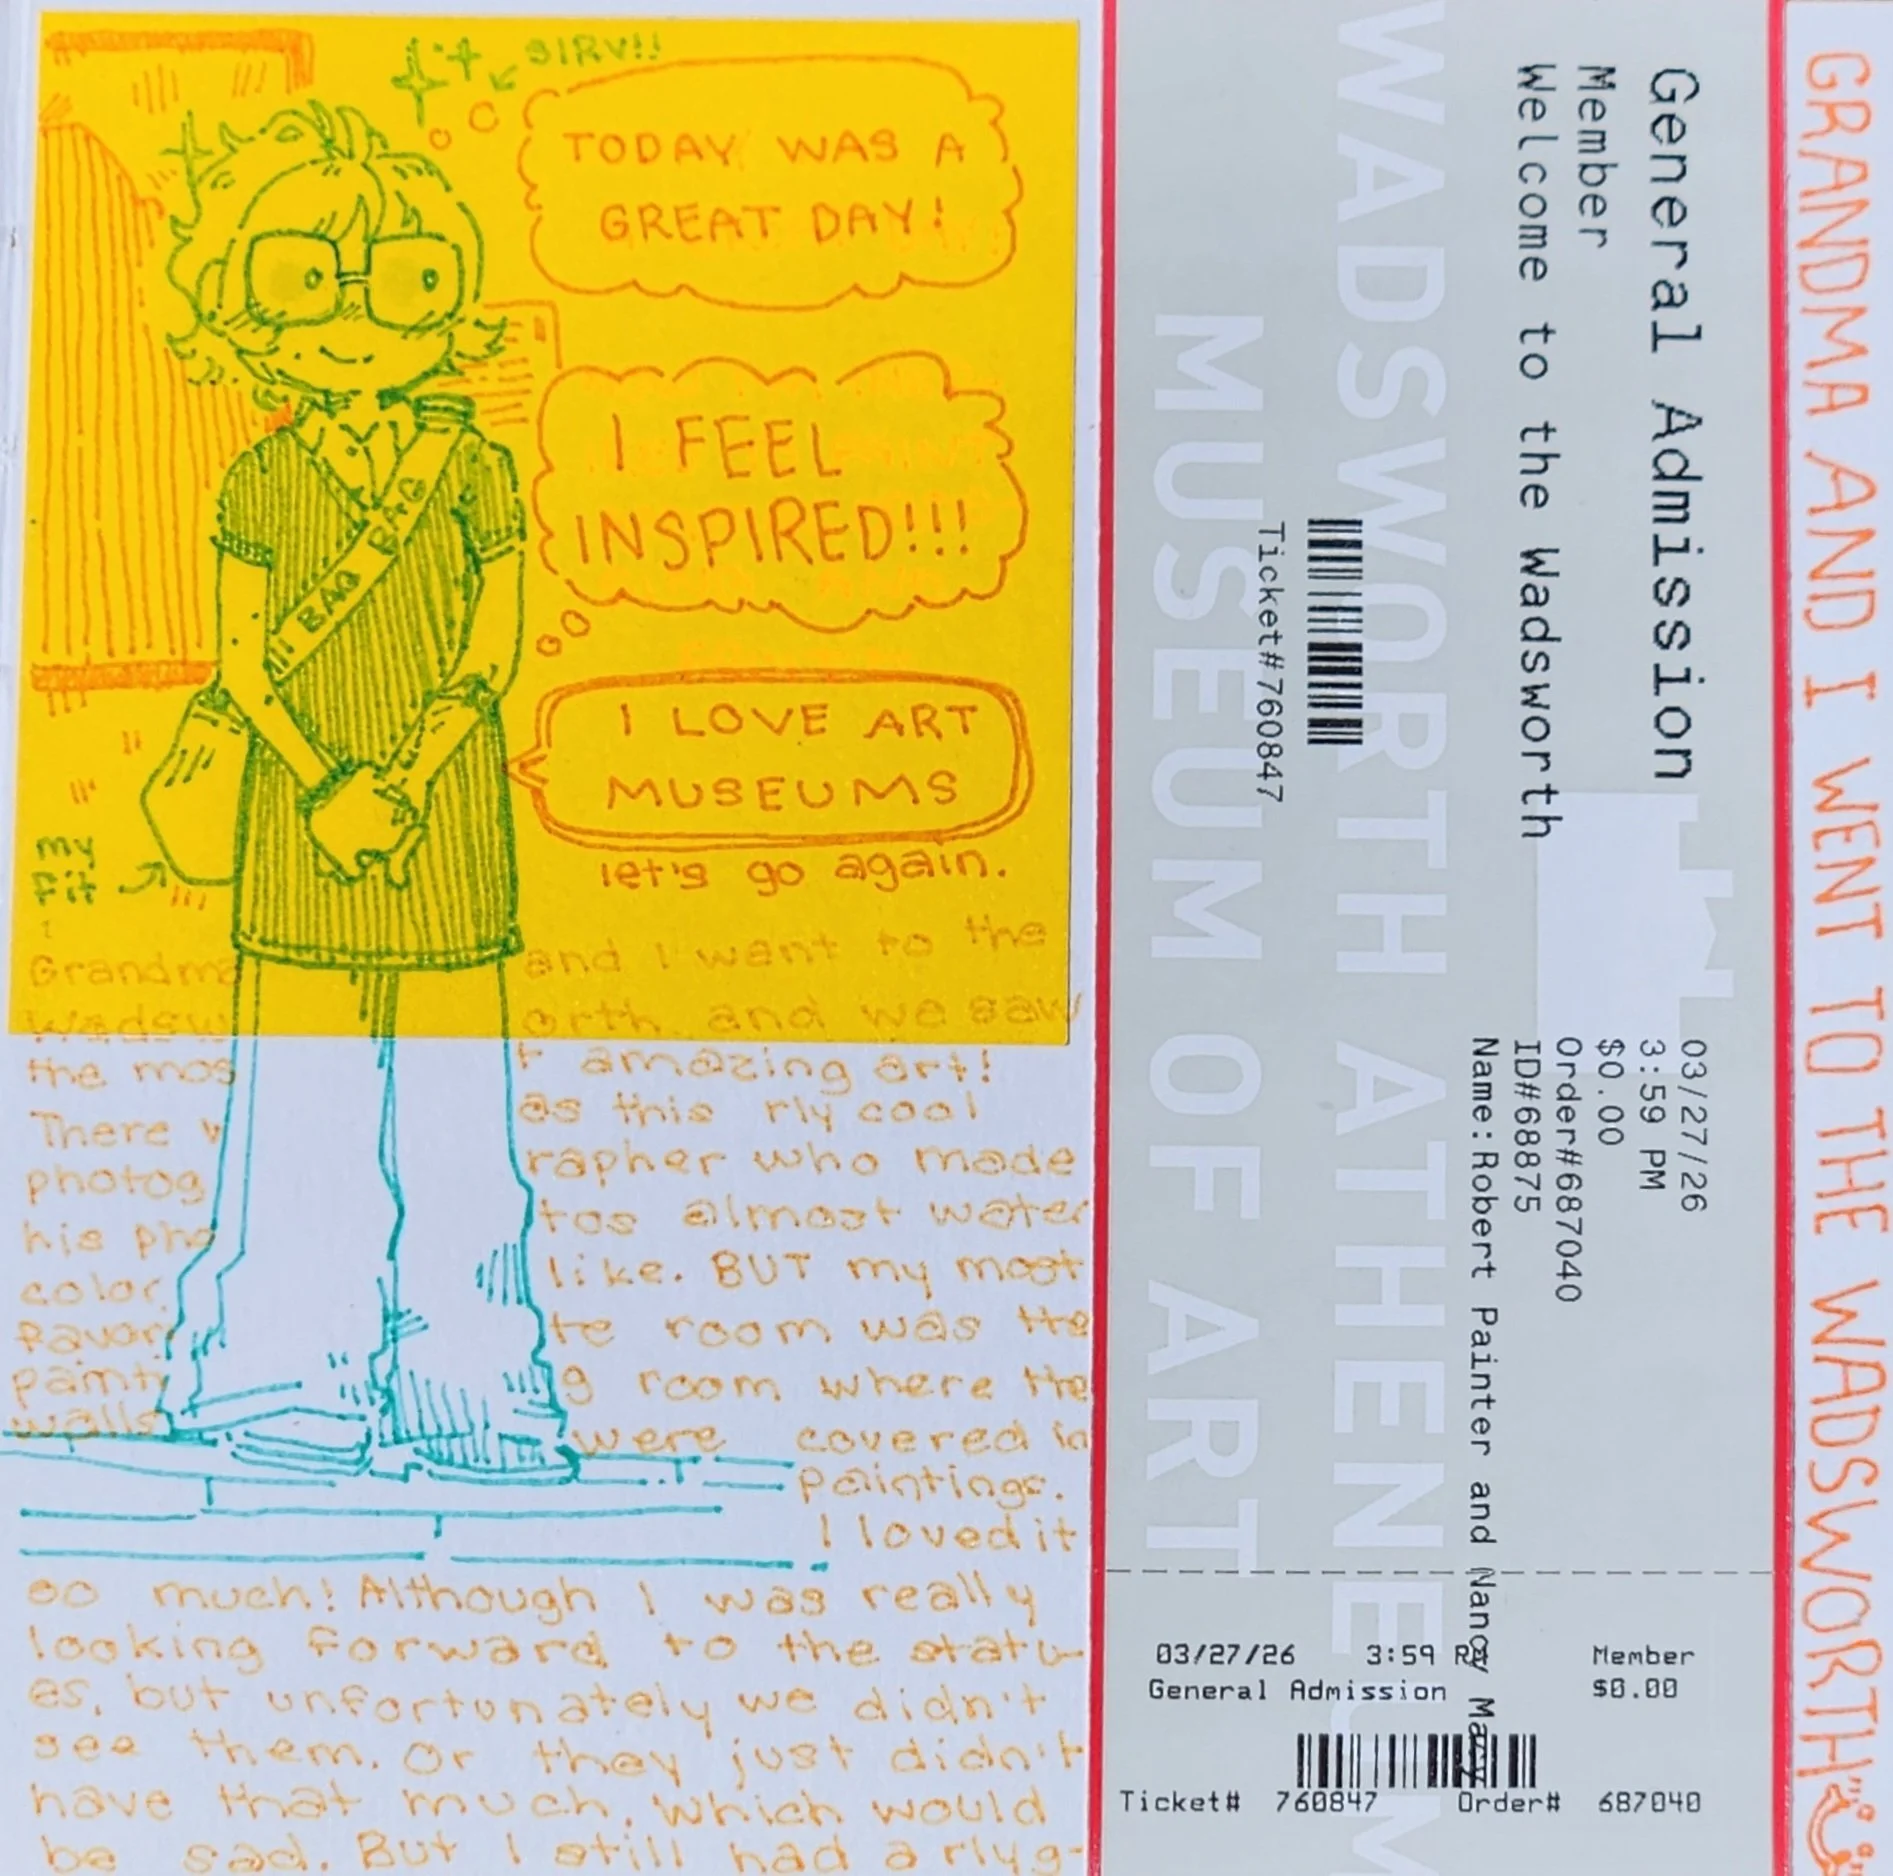 SIRV!!
TODAY WAS A
GREAT DAY!
I FEEL
INSPIRED!!!
I LOVE ART
MUSEUMS
let's go again.
BAG
BAG
my
fit
Grandma and I want to the
Wadsworth and we saw
the most amazing art!
There was this rly cool
photographer who made
his photos almost water
color, like. BUT my most
favorite room was the
painting room where the
walls were covered in
paintings.
I loved it
so much! Although I was really
looking forward to the statu-
es, but unfortunately we didn't
see them. Or they just didn't
have that much, which would
be sad. But I still had a rly g-
General Admission
Member
Welcome to the Wadsworth
WADSWORTH ATHENEUM
MUSEUM OF ART
Ticket#760847
03/27/26
3:59 PM
$0.00
Order#687040
ID#68875
Name:Robert Painter and Nancy Macy
03/27/26 3:59 PM Member
General Admission $0.00
Ticket# 760847 Order# 687040
GRANDMA AND I WENT TO THE WADSWORTH